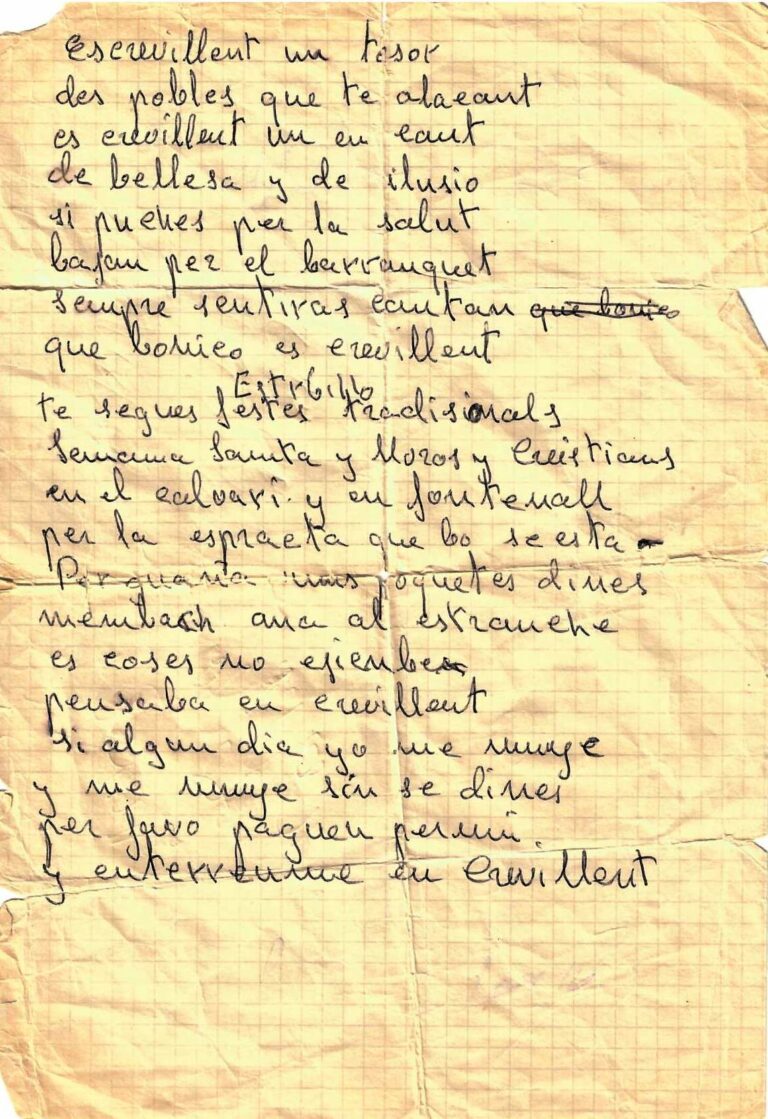 Escrevillent un tesor
des pobles que te alacant
es crevillent un en cant
de bellesa y de ilusio
si puches per la salut
bajan per el barranquet
sempre sentiras cantan que bonico
que bonico es crevillent
Estrbillo
te segues festes tradisionals
Semana Santa y Moros y Cristians
en el calvari y en fontenall
per la espraeta que bo se esta
Per guaña unas poquetes dines
ana al estranche
es coses no
pensaba en crevillent
si algun dia yo me muuye
y me muuye sin se dines
per favo paguen permi
y enterrenme en Crevillent